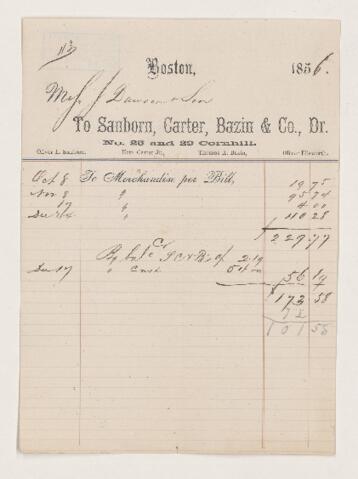 113
Boston, 1856.
Mess J Dawson & Son
To Sanborn, Carter, Bazin & Co., Dr.
No. 25 and 29 Cornhill.
Oliver L. Sanborn. Rich'd Carter Jr. Thomas A. Bazin. Oliver Ellsworth.
Oct 8 To Merchandise per Bill, 19 75
Nov 8 " 95 74
17 " 4 00
Dec 24 " 110 28
$ 229 77
Cr
By bal c 2.19
Dec 17 " Cash 54.00 56 19
$ 173 58
72
101 58